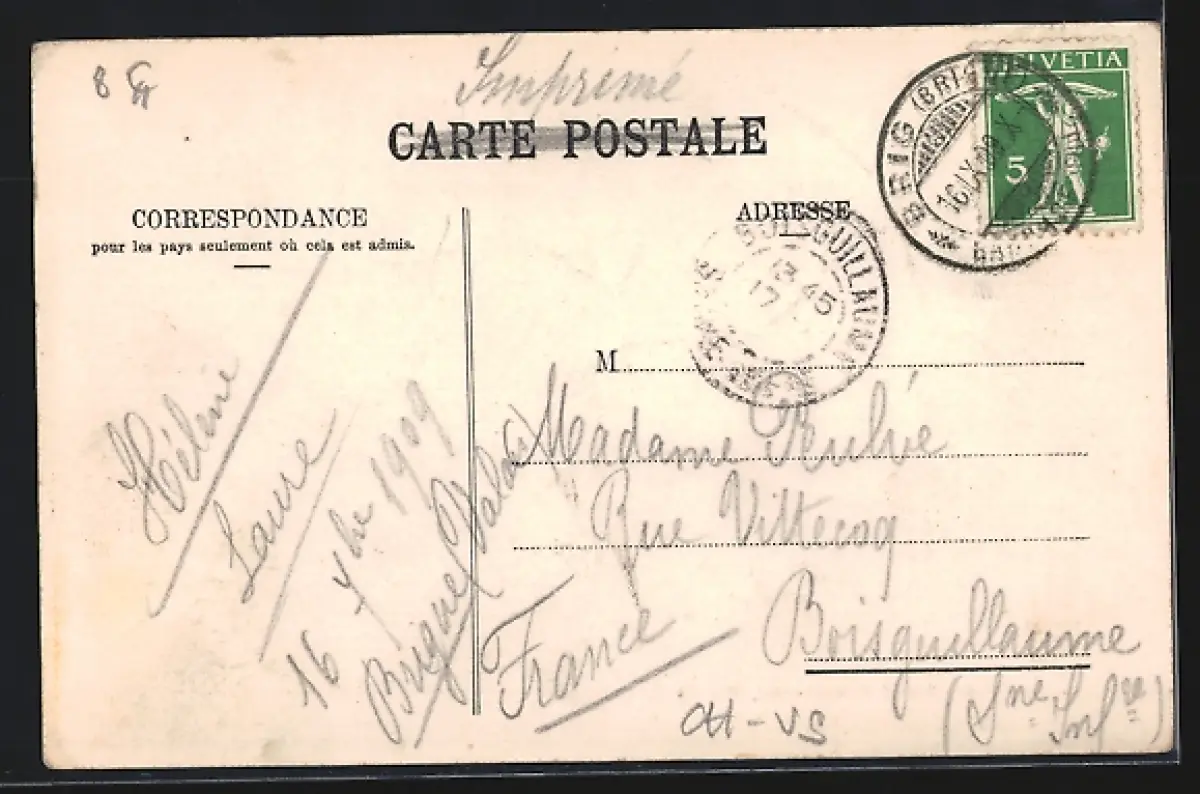 Imprimé
CARTE POSTALE
CORRESPONDANCE
pour les pays seulement où cela est admis.
ADRESSE
HELVETIA
5
BRIG (BRIGUE)
16 IX 09
GUILLAUME
13 45
17
M
Madame
Rue Vittecoq
Boisguillaume
(Sne Infre)
France
Hélène
Laure
16 7bre 1909
Brigue (Valais)
CH-VS